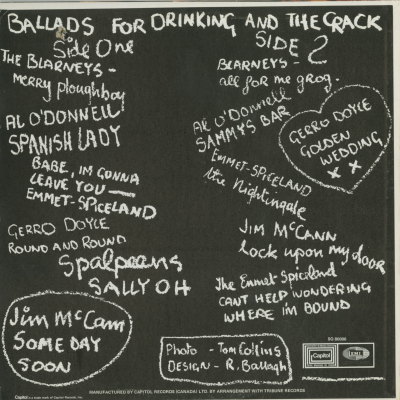 BALLADS FOR DRINKING AND THE CRACK
Side One
THE BLARNEYS -
merry ploughboy
AL O'DONNELL
SPANISH LADY
BABE, IM GONNA
LEAVE YOU —
EMMET-SPICELAND
GERRO DOYLE
ROUND AND ROUND
Spalpeans
SALLY OH
Jim McCann
SOME DAY
SOON
SIDE 2
BLARNEYS -
all for me grog.
AL O'Donnell
SAMMYS BAR
EMMET-SPICELAND
the Nightingale
GERRO DOYLE
GOLDEN
WEDDING
X X
JIM McCANN
lock upon my door
The Emmet Spiceland
CANT HELP WONDERING
WHERE IM BOUND
Photo - Tom Collins
DESIGN - R. Ballagh
Capitol
EMI
MANUFACTURED BY CAPITOL RECORDS (CANADA) LTD. BY ARRANGEMENT WITH TRIBUNE RECORDS